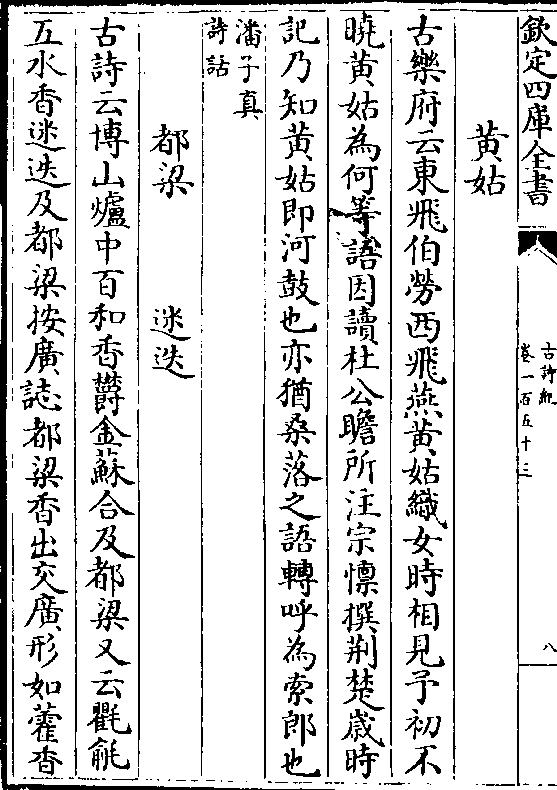 欽定四庫全書
古詩紀
卷一百五十三
八
黃姑
古樂府云東飛伯勞西飛燕黃姑織女時相見予初不
曉黃姑為何等語因讀杜公瞻所注宗懔撰荆楚歳時
記乃知黃姑即河鼓也亦猶桑落之語轉呼為索郎也
潘子真
詩話
都梁　迷迭
古詩云博山爐中百和香鬱金蘇合及都梁又云氍毹
五水香迷迭及都梁按廣誌都梁香出交廣形如藿香